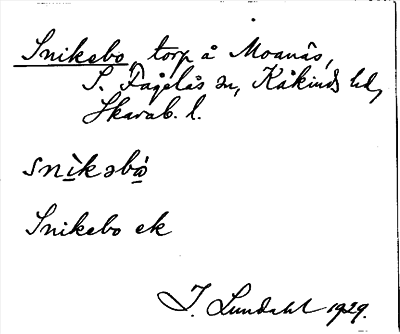 Snikebo, torp å Moanäs,
S. Fågelås sn, Kåkinds hd,
Skarab. l.
snìkəbó
Snikebo ek
I. Lundahl 1929.